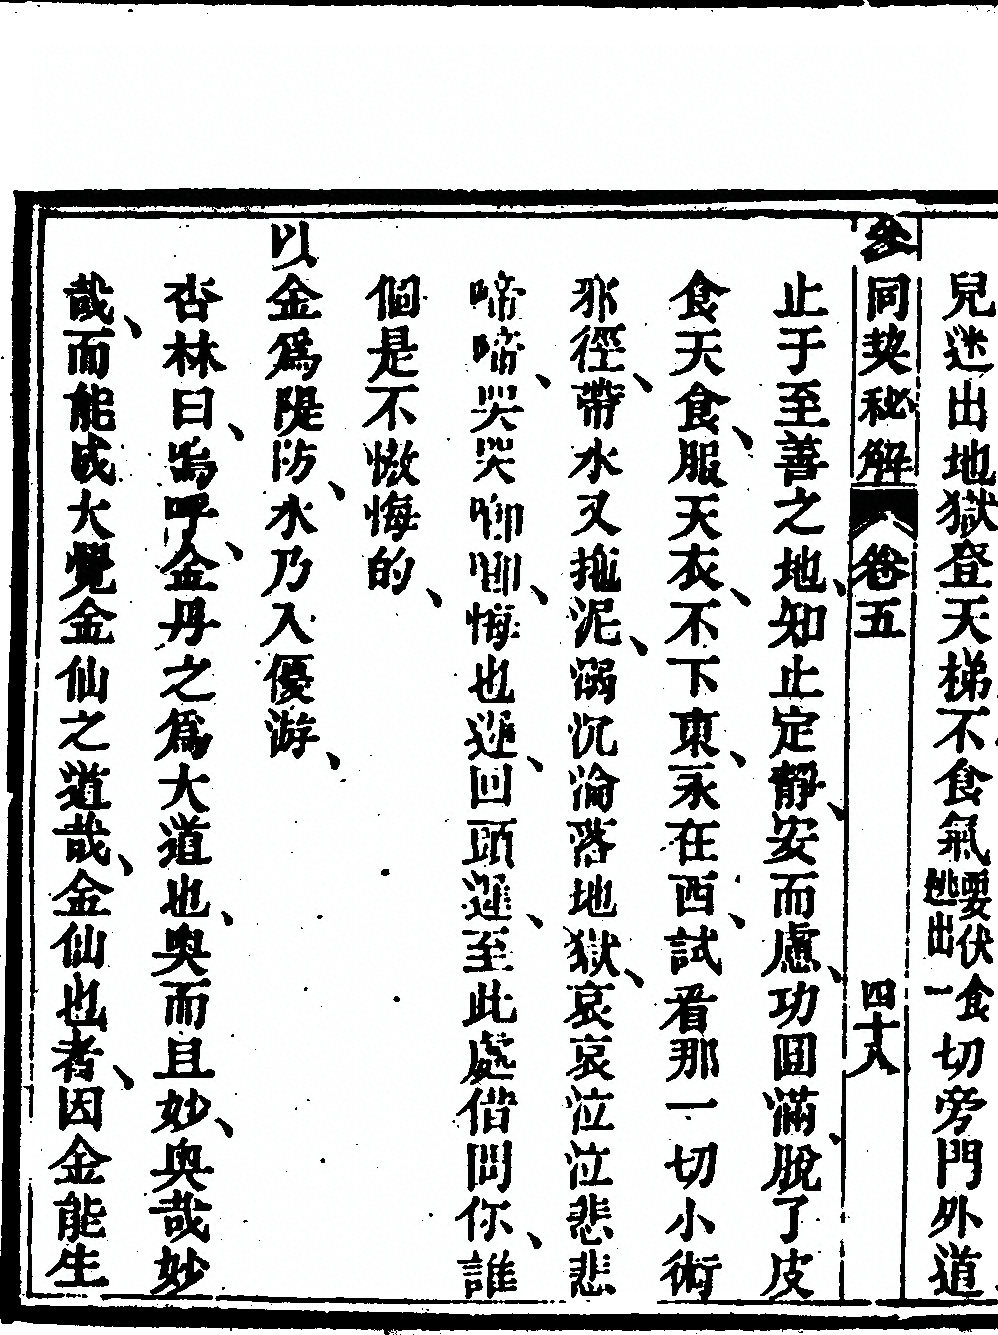 兒迷出地獄登天梯不食氣要伏食逃出一切旁門外道
參同契秘解 卷五 四十八
止于至善之地、知止定靜、安而慮、功圓滿、脫了皮
食天食、服天衣、不下東、永在西、試看那一切小術
邪徑、帶水又拖泥、溺沉淪落地獄、哀哀泣泣悲悲
啼啼、哭哭啣啣、悔也遲、回頭遲、至此處借問你、誰
個是不懺悔的、
以金為隄防、水乃入優游、
杏林曰、嗚呼、金丹之為大道也、奧而且妙、奧哉妙
哉、而能成大覺金仙之道哉、金仙也者、因金能生